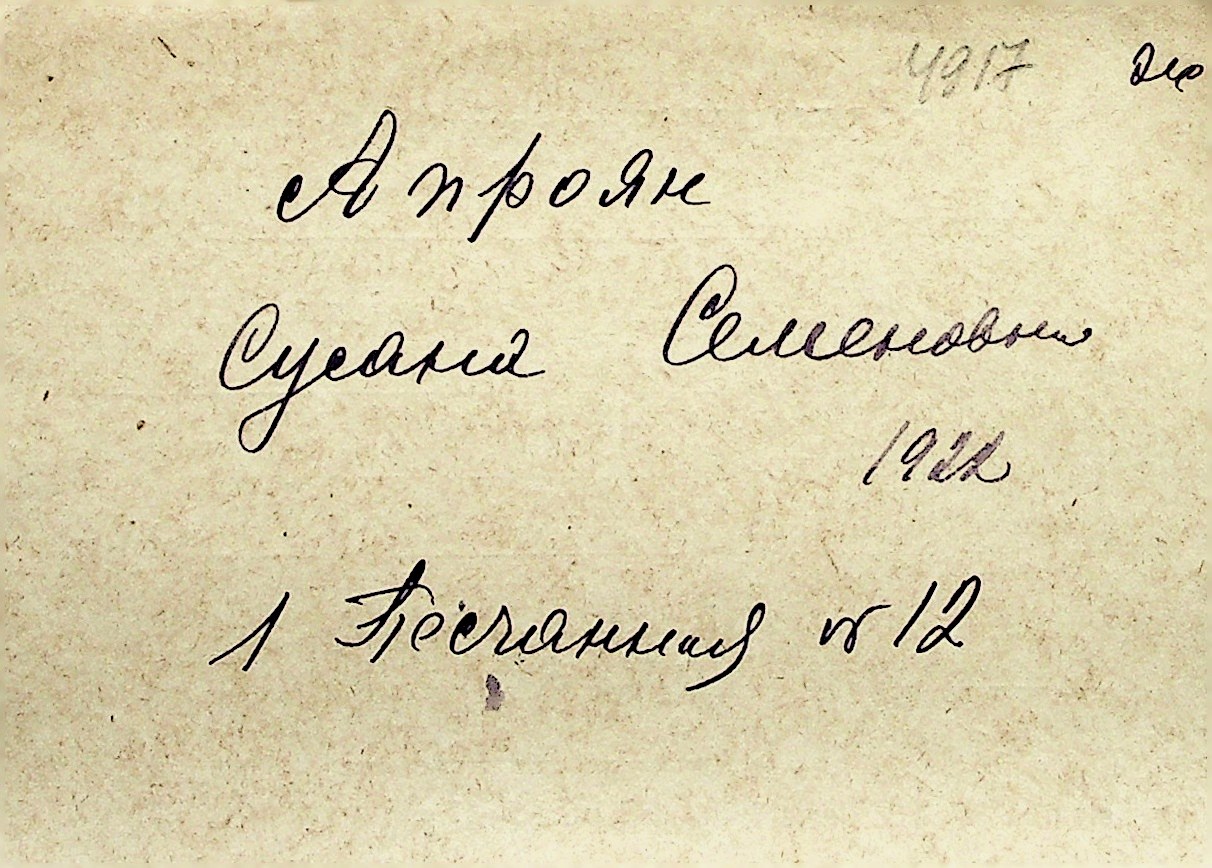 4917
Апроян
Сусана Семеновна
1922
1 Песчанная № 12